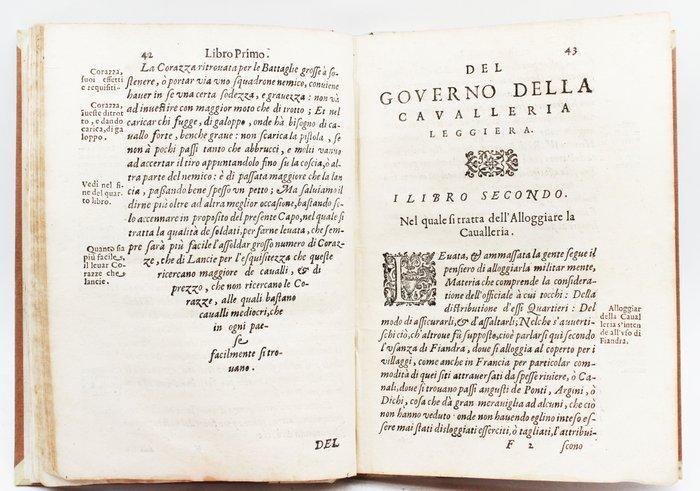 42 Libro Primo.
Corazza,
suoi effetti
e requisiti.
Corazza,
inueste di trot
to, e dando
carica, di ga
loppo.
Vedi nel fi
ne del quar
to libro.
Quanto sia
più facile,
il leuar Co
razze che
lancie.
La Corazza ritrouata per le Battaglie grosse à so-
stenere, ò portar via vno squadrone nemico, conuiene
hauer in se vna certa sodezza, e grauezza: non và
ad inuestire con maggior moto che di trotto; Et nel
caricar chi fugge, di galoppo, onde hà bisogno di ca-
uallo forte, benche graue: non scarica la pistola, se
non à pochi passi tanto che abbrucci, e molti vanno
ad accertar il tiro appuntandolo fino su la coscia, ò al
tra parte del nemico: è di passata maggiore che la lan
cia, passando bene spesso vn petto; Ma salniamo il
dirne più oltre ad altra meglior occasione, bastando so
lo accennare in proposito del presente Capo, nel quale si
tratta la qualità de soldati, per farne leuata, che sem
pre sarà più facile l'assoldar grosso numero di Coraz-
ze, che di Lancie per l'esquisitezza che queste
ricercano maggiore de caualli, & di
prezzo, che non ricercano le Co-
razze, alle quali bastano
caualli mediocri, che
in ogni pae-
se
facilmente si tro-
uano.
DEL
43
DEL
GOVERNO DELLA
CAVALLERIA
LEGGIERA.
I LIBRO SECONDO.
Nel quale si tratta dell'Alloggiare la
Caualleria.
LEuata, & ammassata la gente segue il
pensiero di alloggiarla militarmente,
Materia che comprende la considera
tione dell'officiale à cui tocchi: Della
distributione d'essi Quartieri: Del
modo di assicurarli, & d'assaltarli; Nel che s'auuerti-
schi ciò, ch'altroue fù supposto, cioè parlarsi qui secondo
l'vsanza di Fiandra, doue si alloggia al coperto per i
villaggi, come anche in Francia per particolar com
modità di quei siti attrauersati da spesse riuiere, ò Ca-
nali, doue si trouano passi angusti de Ponti, Argini, ò
Dichi, cosa che dà gran merauiglia ad alcuni, che ciò
non hanno veduto: onde non hauendo eglino inteso es-
sere mai stati disloggiati esserciti, ò tagliati, l'attribui-
Alloggiar
della Caual
leria s'inten
de all'vso di
Fiandra.
F 2 scono